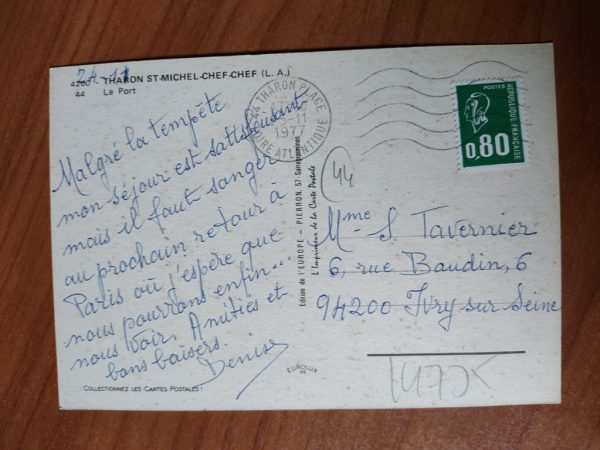 24-11
4260 THARON ST-MICHEL-CHEF-CHEF (L. A.)
44 Le Port
Malgré la tempête
mon séjour est satisfaisant
mais il faut songer
au prochain retour à
Paris où j'espère que
nous pourrons enfin...
nous voir. Amitiés et
bons baisers.
Denise
COLLECTIONNEZ LES CARTES POSTALES !
Edition de l'EUROPE - PIERRON, 57-Sarreguemines
L'Imprimeur de la Carte Postale
EUROLUX
44 THARON PLAGE
-11
1977
LOIRE ATLANTIQUE
POSTES
REPUBLIQUE FRANÇAISE
0,80
44
Mme S Tavernier
6, rue Baudin, 6
94200 Ivry-sur-Seine